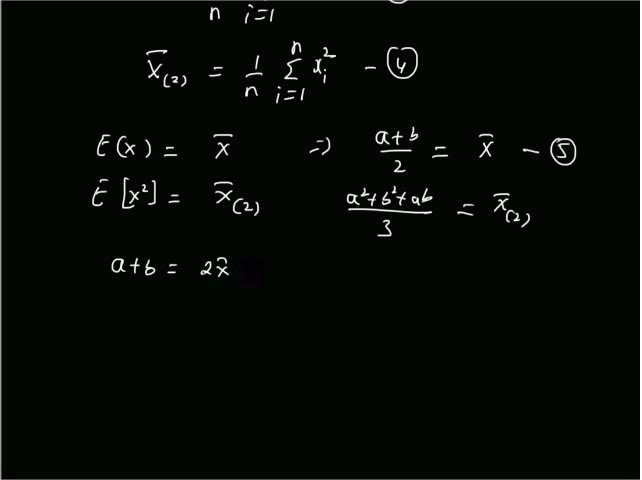 n i=1
X̄₍₂₎ = 1/n ∑ⁿᵢ₌₁ xᵢ² – ④
E(x) = x̄ ⇒ a+b/2 = x̄ – ⑤
E[x²] = x̄₍₂₎ a²+b²+ab/3 = x̄₍₂₎
a+b = 2x̄